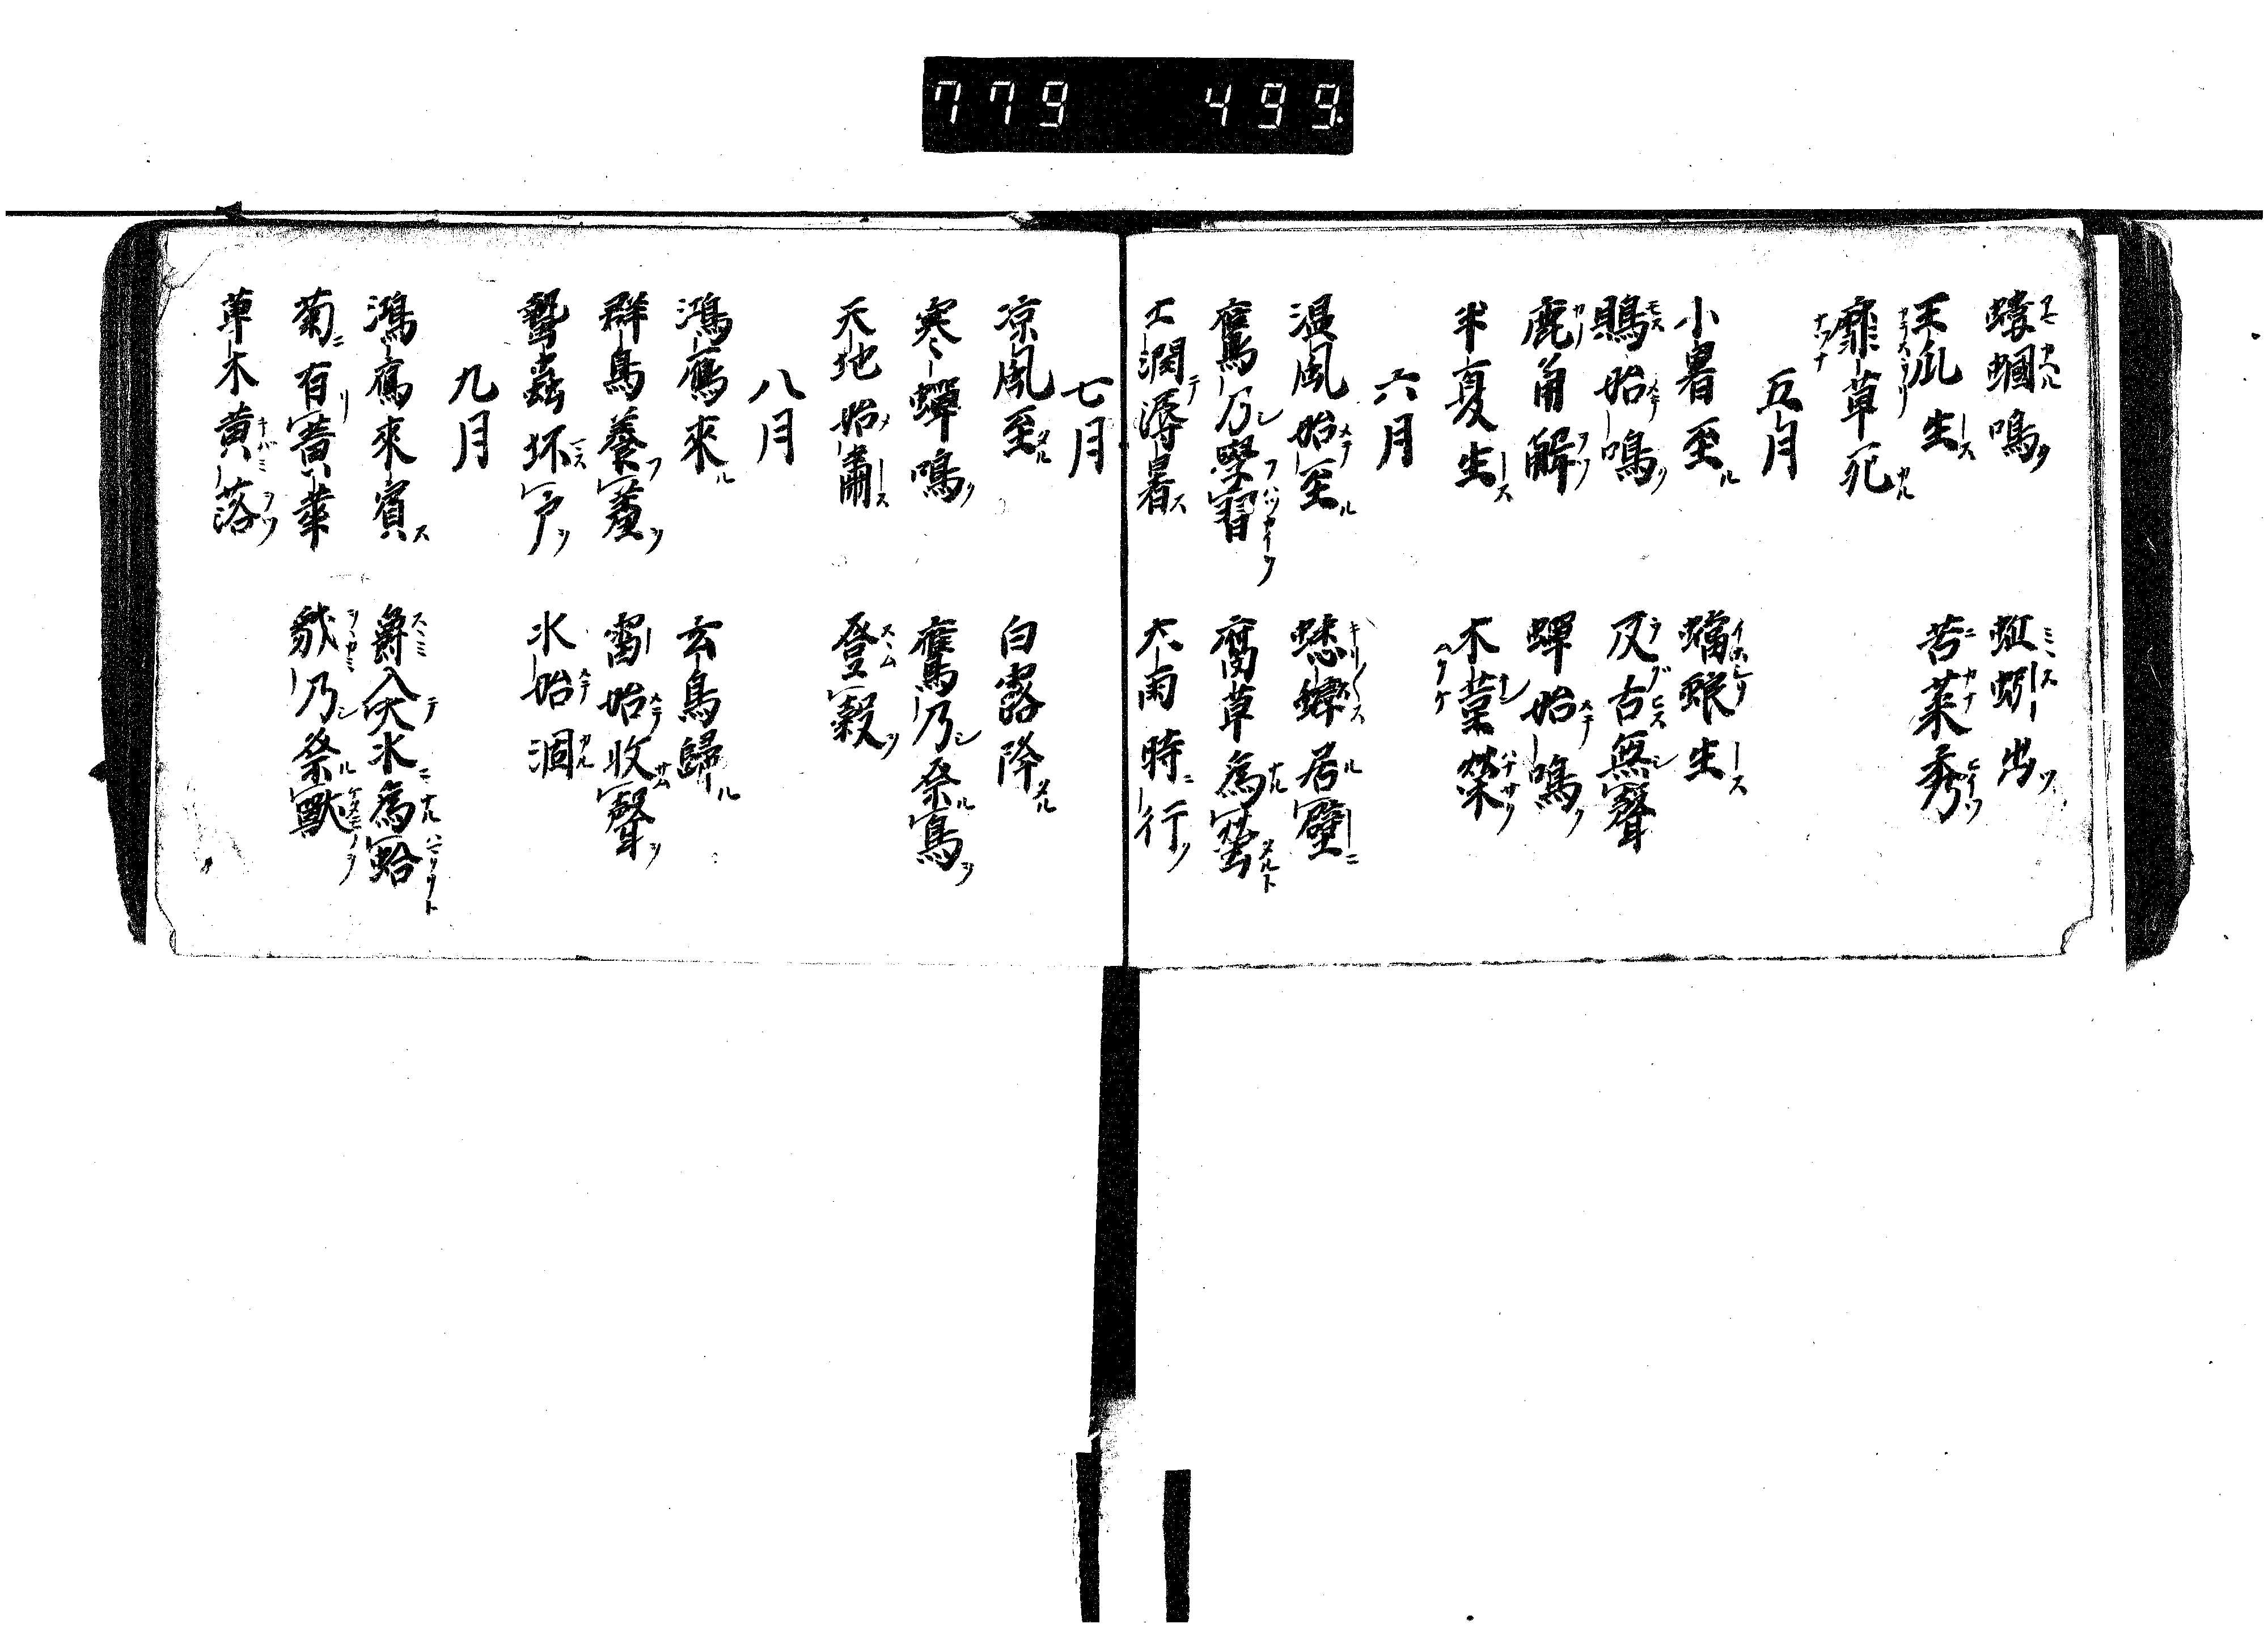 779 499.
螻蟈鳴 蚯蚓出
王瓜生 苦菜秀
靡草死
五月
小暑至 螗蜋生
鵙始鳴 反古無聲
鹿角解 蟬始鳴
半夏生 木菫榮
六月
温風始至 蟋蟀居壁
鷹乃學習 腐草為螢
土潤溽暑 大雨時行
七月
凉風至 白露降
寒蟬鳴 鷹乃祭鳥
天地始肅 登穀
八月
鴻鴈來 玄鳥歸
群鳥養羞 雷始收聲
蟄蟲坏戸 水始涸
九月
鴻鴈來賓 爵入大水為蛤
菊有黄華 豺乃祭獸
草木黄落